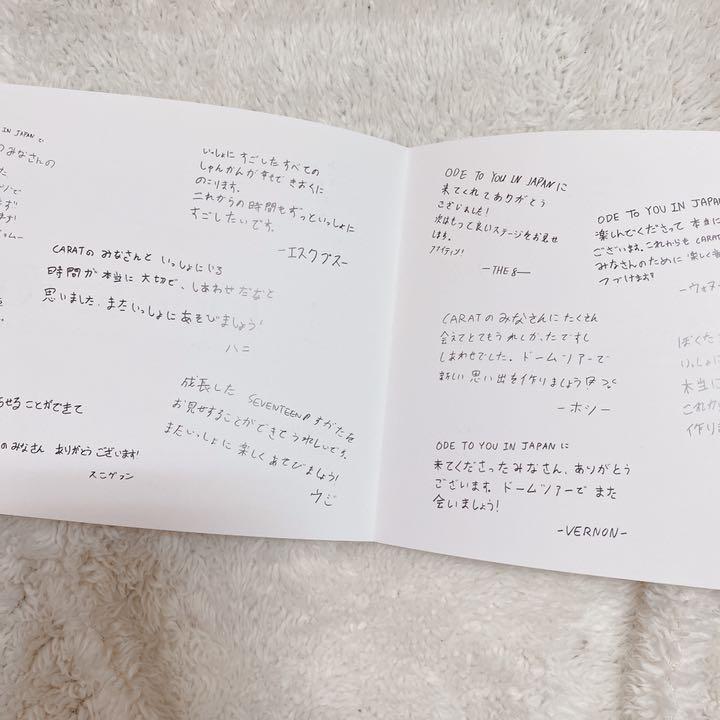 IN JAPANで
のみなさんの
いっしょに すごした すべての
しゅんかんが 幸せで きおくに
のこります。
これからの時間もずっといっしょに
すごしたいです。
ーエスクプスー
CARATの みなさんと いっしょにいる
時間が 本当に 大切で、しあわせだなと
思いました。またいっしょにあそびましょう!
ハニ
成長した SEVENTEENの すがたを
お見せすることができてうれしいです。
またいっしょに 楽しく あそびましょう!
ウジ
らせることができて
のみなさん ありがとうございます!
スングァン
ODE TO YOU IN JAPANに
来てくれてありがとう
ございました!
次はもって良いステージをお見せ
します。
ファイティン!
ーTHE 8ー
CARATのみなさんに たくさん
会えてとてもうれしかったですし
しあわせでした。ドームツアーで
新しい 思い出を作りましょう
ーホシー
ODE TO YOU IN JAPANに
来てくださったみなさん、ありがとう
ございます。ドームツアーで また
会いましょう!
-VERNON-
ODE TO YOU IN JAPAN
楽しんでくださって 本当に
ございます。これからも CARAT
みなさんのために 楽しく
つづけます!
ーウォヌ
ぼくた
いっしょに
本当に
これか
作りま